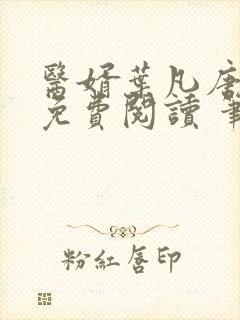 醫婿葉凡唐
免費閱讀 筆
粉紅唇印